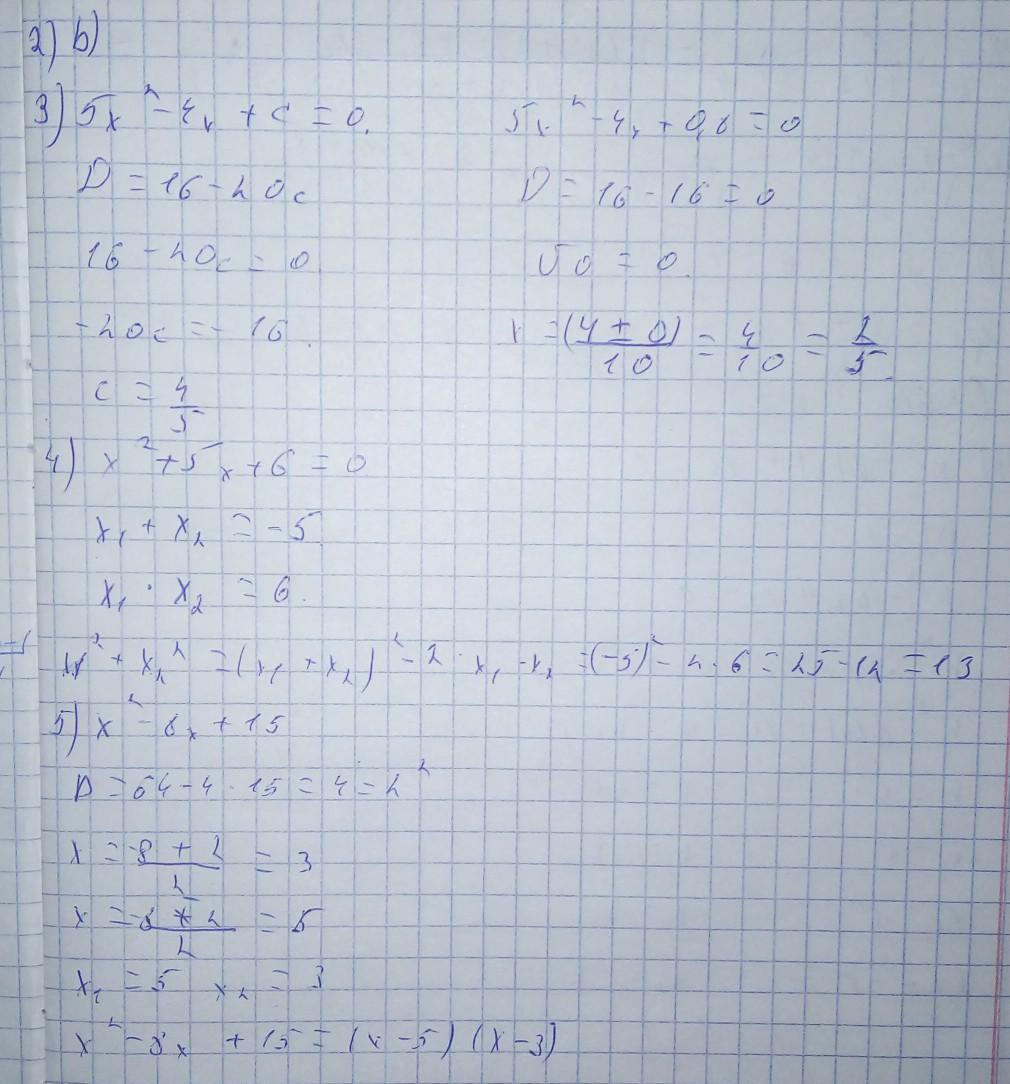 2) b)
3) 5x² - 4x + c = 0.
D = 16 - 20c
16 - 20c = 0
-20c = - 16.
c = 4/5
5x² - 4x + 0,8 = 0
D = 16 - 16 = 0
√0 = 0.
x = (4 ± 0)/10 = 4/10 = 2/5.
4) x² + 5x + 6 = 0
x₁ + x₂ = -5
x₁ · x₂ = 6.
x₁² + x₂² = (x₁ + x₂)² - 2 · x₁ · x₂ = (-5)² - 2 · 6 = 25 - 12 = 13
5) x² - 8x + 15
D = 64 - 4 · 15 = 4 = 2²
x = -8 + 2/2 = 3
x = -8 + 2/2 = 5
x₁ = 5 x₂ = 3
x² - 8x + 15 = (x - 5) (x - 3)